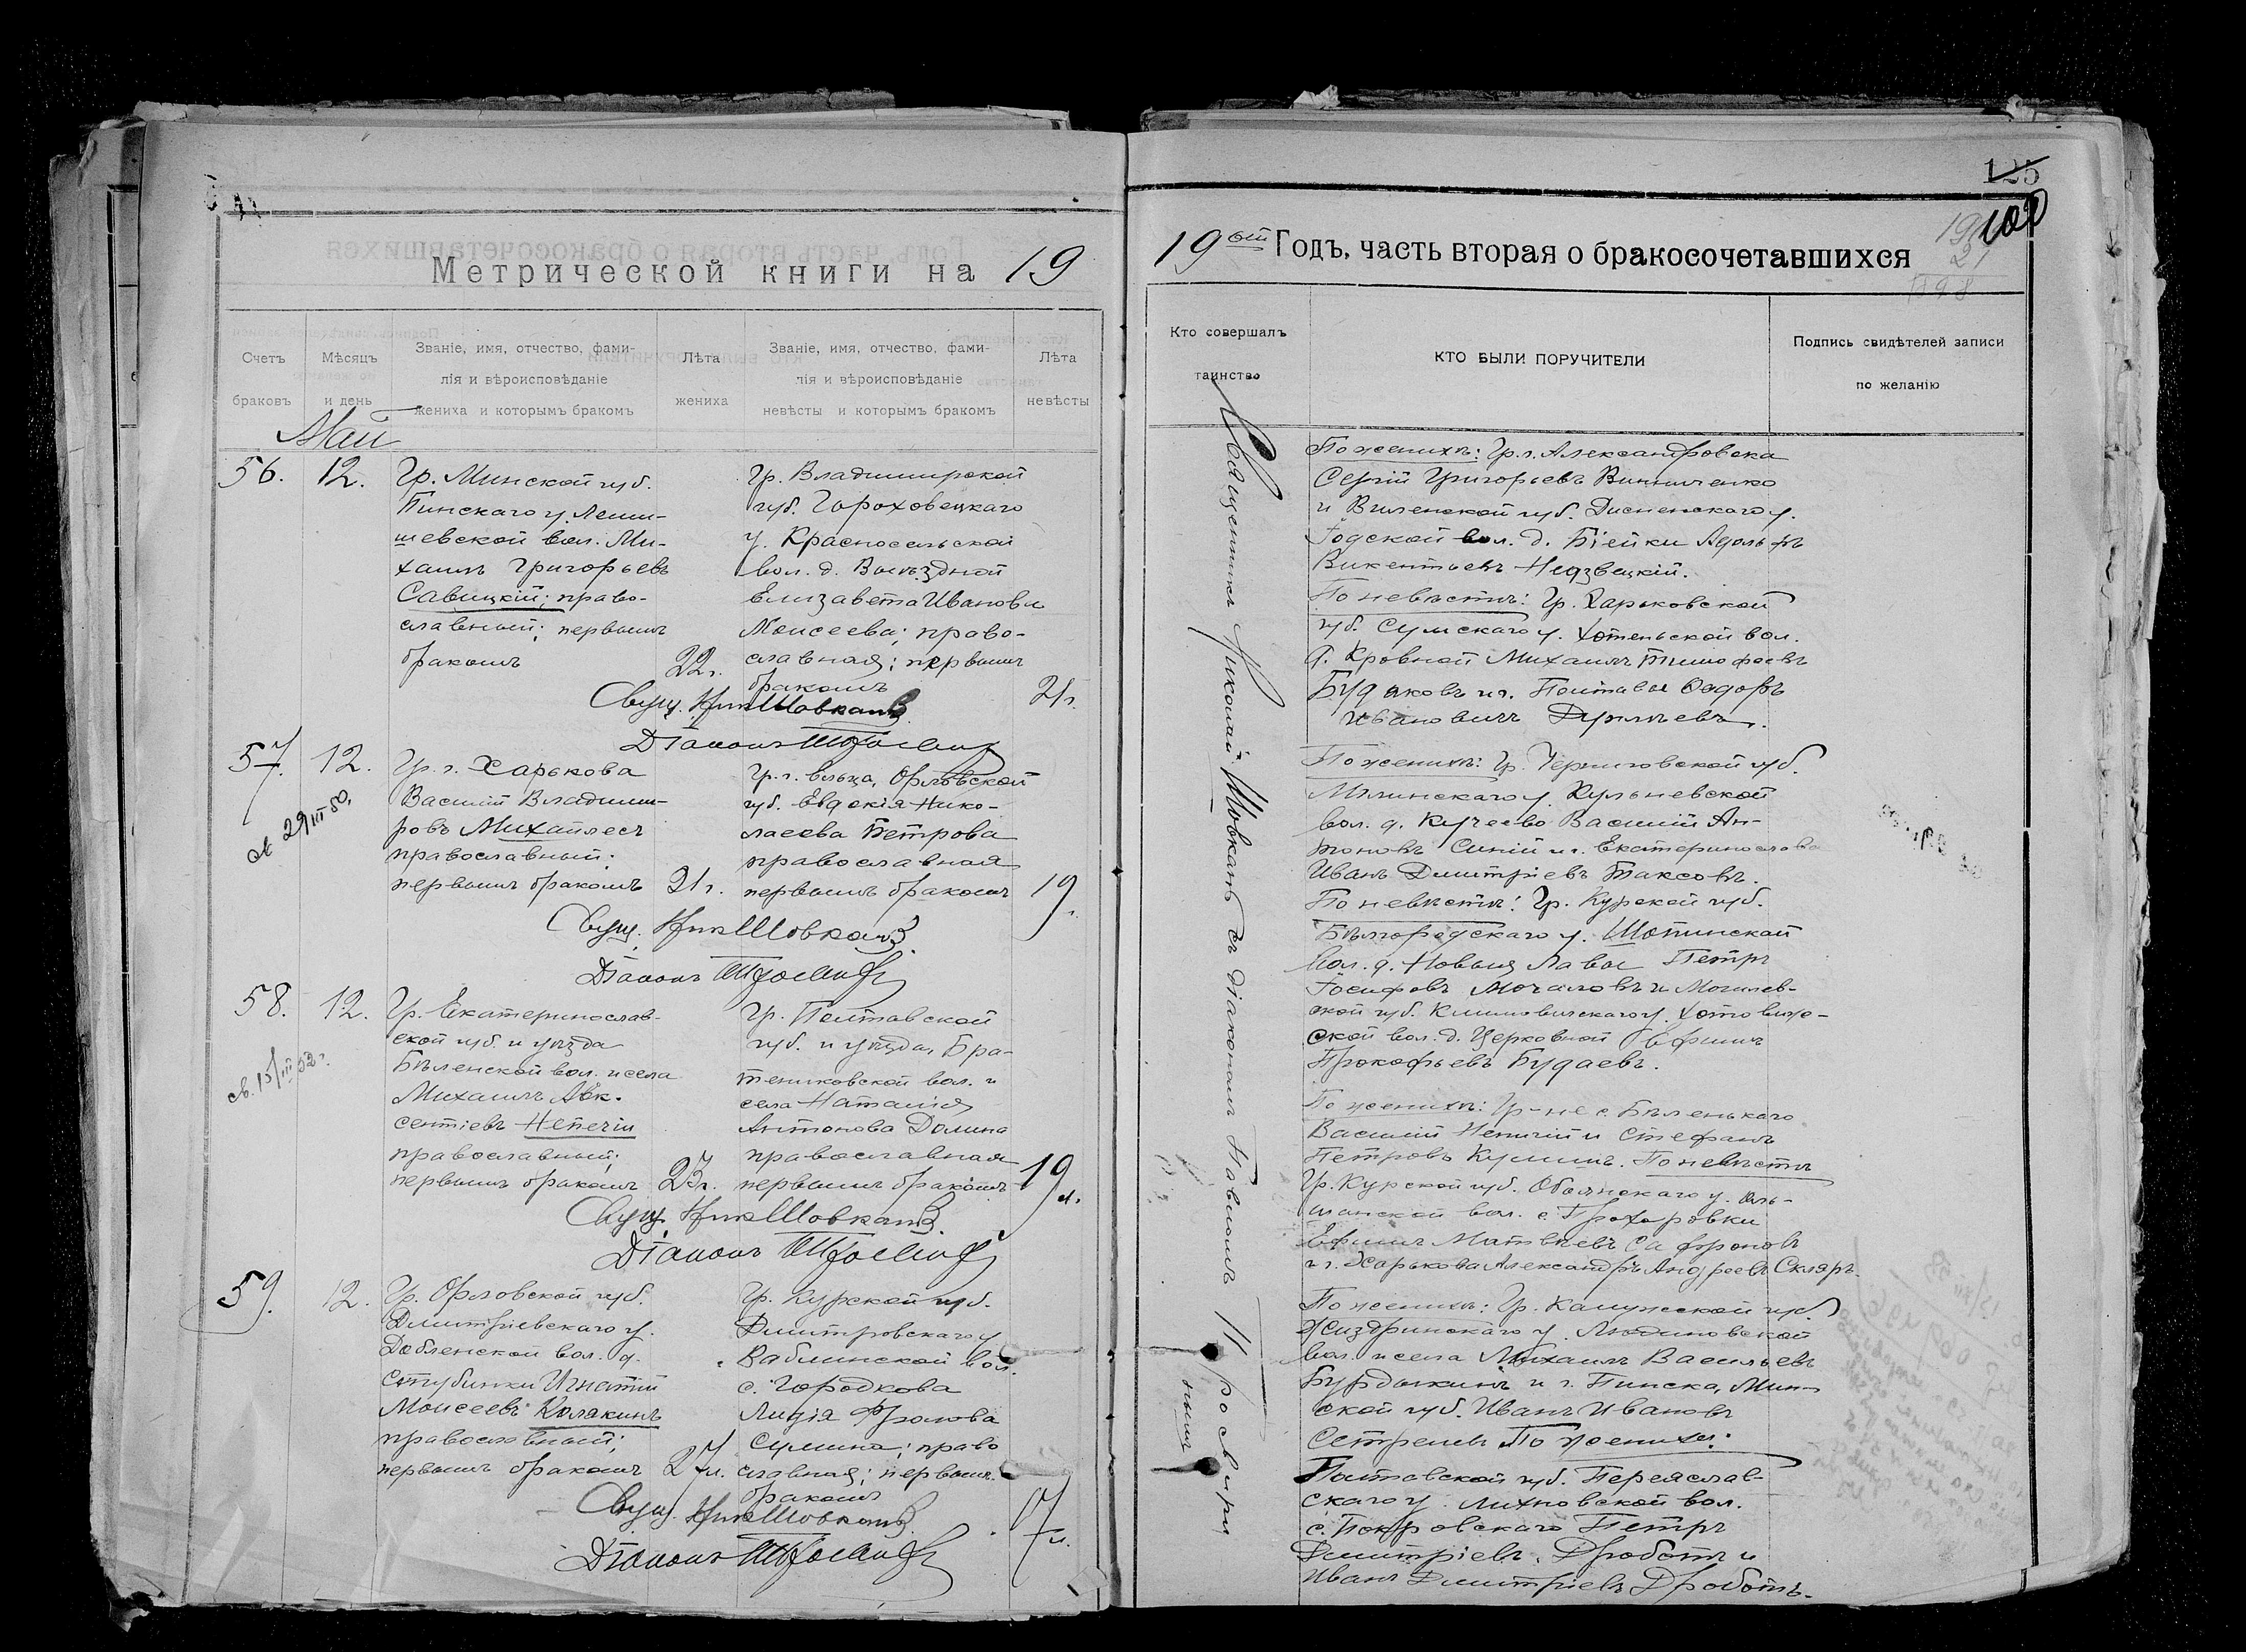 Метрической книги на 19
Счетъ браковъ
Мѣсяцъ и день
Званіе, имя, отчество, фами-
лія и вѣроисповѣданіе
жениха и которымъ бракомъ
Лѣта жениха
Званіе, имя, отчество, фами-
лія и вѣроисповѣданіе
невѣсты и которымъ бракомъ
Лѣта невѣсты
Май
56.
12.
Гр. Минской губ.
Пинскаго у. Леми-
шевской вол. Ми-
хаилъ Григорьевъ
Савицкій; право-
славный; первымъ
бракомъ
22 г.
Гр. Владимирской
губ. Гороховецкаго
у. Красносельской
вол. д. Выѣздной
Елизавета Иванова
Моисеева; право-
славная; первымъ
бракомъ
21 г.
Свящ. Ник Шовкань
Діаконъ
57.
12.
св 29/III 50.
Гр. г. Харькова
Василій Владими-
ровъ Михайлесъ
православный;
первымъ бракомъ
21 г.
Гр. г. Ельца, Орловской
губ. Евдокія Нико-
лаева Петрова
православная
первымъ бракомъ
19
Свящ. Ник Шовкань
Діаконъ
58.
12.
св. 15/III 52 г.
Гр. Екатеринослав-
ской губ. и уѣзда
Бѣленской вол. и села
Михаилъ Авк-
сентіевъ Непечій
православный;
первымъ бракомъ
23 г.
Гр. Полтавской
губ. и уѣзда, Бра-
тешковской вол. и
села Наталія
Антонова Долина
православная
первымъ бракомъ
19 л.
Свящ. Ник Шовкань
Діаконъ
59.
12.
Гр. Орловской губ.
Дмитріевскаго у.
Добленской вол. д.
Столбинки Игнатій
Моисеевъ Колякинъ
православный;
первымъ бракомъ
27 л.
Гр. Курской губ.
Дмитровскаго у
Ваблинской вол.
с. Городкова
Лидія Фролова
Сумина; право
славная; первымъ
бракомъ
17 л.
Свящ. Ник Шовкань
Діаконъ
125
102
19ый Годъ, часть вторая о бракосочетавшихся
Кто совершалъ
таинство
КТО БЫЛИ ПОРУЧИТЕЛИ
Подпись свидѣтелей записи
по желанію
Священникъ Николай Шовкань съ діакономъ Павломъ
По женихѣ: Гр. г. Александровска
Сергій Григорьевъ Винниченко
и Виленской губ. Дисненскаго у.
Годской вол. д. Біейки Адольфъ
Викентьевъ Недзвецкій.
По невѣстѣ: Гр. Харьковской
губ. Сумскаго у. Хотеньской вол.
д. Кровной Михаилъ Тимофеевъ
Будаковъ и г. Полтавы Федоръ
Ивановичъ
По женихѣ: Гр. Черниговской губ.
Мглинскаго у. Кульневской
вол. д. Кучеево Василій Ан-
тоновъ Синій и г. Екатеринослава
Иванъ Дмитріевъ Таксовъ.
По невѣстѣ: Гр. Курской губ.
Бѣлгородскаго у. Шопинской
вол. д. Новыя Лавы Петръ
Іосифовъ Мочаловъ и Могилев-
ской губ. Климовичскаго у. Хотовиж-
ской вол. д. Церковной Ефимъ
Прокофьевъ Будаевъ.
По женихѣ: Гр-не с. Бѣленькаго
Василій Непечій и Стефанъ
Петровъ Кулишъ. По невѣстѣ
Гр. Курской губ. Обоянскаго у. Оль-
шанской вол. с. Прохоровки
Ефимъ Матвѣевъ Сафроновъ
и г. Харькова Александръ Андреевъ Скляръ.
По женихѣ: Гр. Калужской губ
Жиздринскаго у. Людиновской
вол. и села Михаилъ Васильевъ
Бурдыкинъ и г. Пинска, Мин-
ской губ. Иванъ Ивановъ
По женихѣ:
Полтавской губ. Переяслав-
скаго у. Лихновской вол.
с. Покровскаго Петръ
Дмитріевъ. Дроботъ и
Иванъ Дмитріевъ Дроботъ.